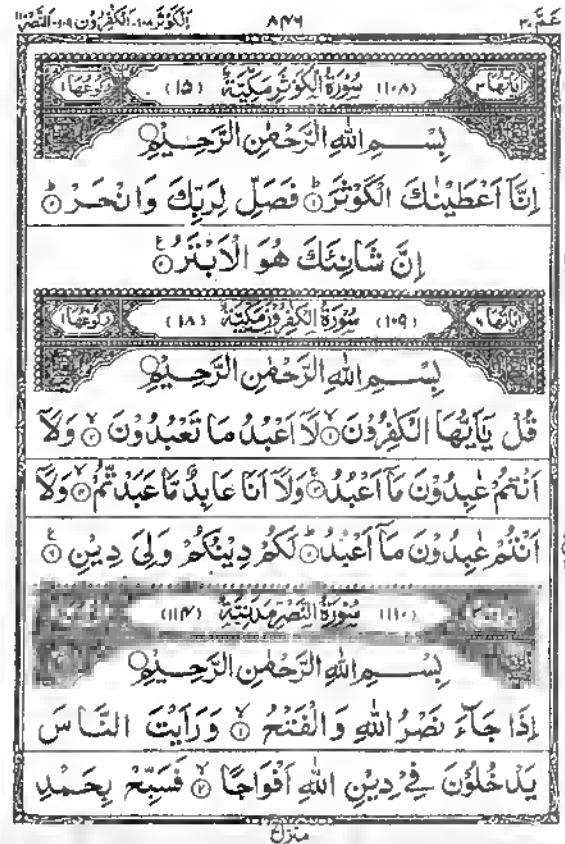 عَمَّ ٣٠ ٨٤٦ اَلْکَوْثَر ١٠٨ - اَلْکٰفِرُوْن ١٠٩ - اَلنَّصْر ١١٠
اٰيَاتُهَا ٣ (١٠٨) سُوْرَةُ الْكَوْثَرِ مَكِّيَّةٌ (١٥) رُكُوْعُهَا ١
بِسْمِ اللهِ الرَّحْمٰنِ الرَّحِيْمِ
اِنَّاۤ اَعْطَيْنٰكَ الْكَوْثَرَ ؕ۝١ فَصَلِّ لِرَبِّكَ وَانْحَرْ ؕ۝٢
اِنَّ شَانِئَكَ هُوَ الْاَبْتَرُ ۠۝٣
اٰيَاتُهَا ٦ (١٠٩) سُوْرَةُ الْكٰفِرُوْنَ مَكِّيَّةٌ (١٨) رُكُوْعُهَا ١
بِسْمِ اللهِ الرَّحْمٰنِ الرَّحِيْمِ
قُلْ يٰۤاَيُّهَا الْكٰفِرُوْنَ ۙ۝١ لَاۤ اَعْبُدُ مَا تَعْبُدُوْنَ ۙ۝٢ وَلَاۤ
اَنْتُمْ عٰبِدُوْنَ مَاۤ اَعْبُدُ ۚ۝٣ وَلَاۤ اَنَا عَابِدٌ مَّا عَبَدْتُّمْ ۙ۝٤ وَلَاۤ
اَنْتُمْ عٰبِدُوْنَ مَاۤ اَعْبُدُ ؕ۝٥ لَكُمْ دِيْنُكُمْ وَلِىَ دِيْنِ ۠۝٦
(١١٠) سُوْرَةُ النَّصْرِ مَدَنِيَّةٌ (١١٤)
بِسْمِ اللهِ الرَّحْمٰنِ الرَّحِيْمِ
اِذَا جَآءَ نَصْرُ اللهِ وَالْفَتْحُ ۙ۝١ وَرَاَيْتَ النَّاسَ
يَدْخُلُوْنَ فِىْ دِيْنِ اللهِ اَفْوَاجًا ۙ۝٢ فَسَبِّحْ بِحَمْدِ
منزل ٧